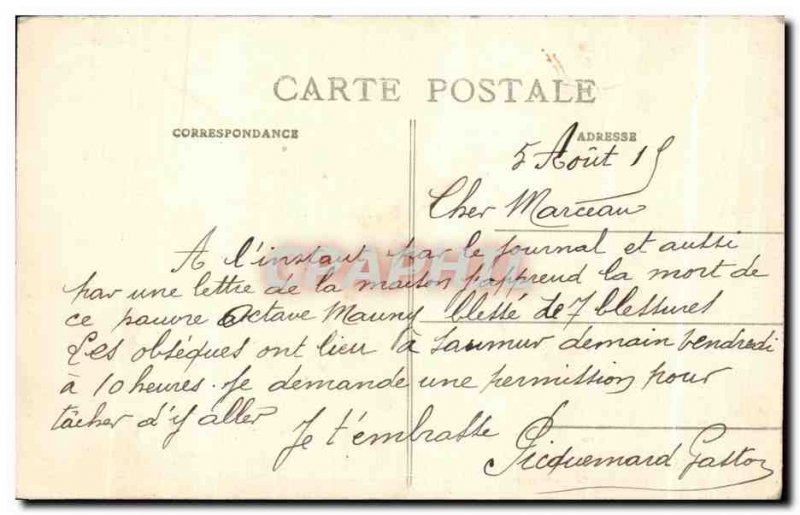 CARTE POSTALE
CORRESPONDANCE
ADRESSE
5 Août 15
Cher Marceau
A l'instant par le journal et aussi
par une lettre de la maison j'apprend la mort de
ce pauvre Octave Mauny blessé de 7 blessures
Les obsèques ont lieu à Saumur demain Vendredi
à 10 heures. Je demande une permission pour
tâcher d'y aller
Je t'embrasse
Picquemard Gaston